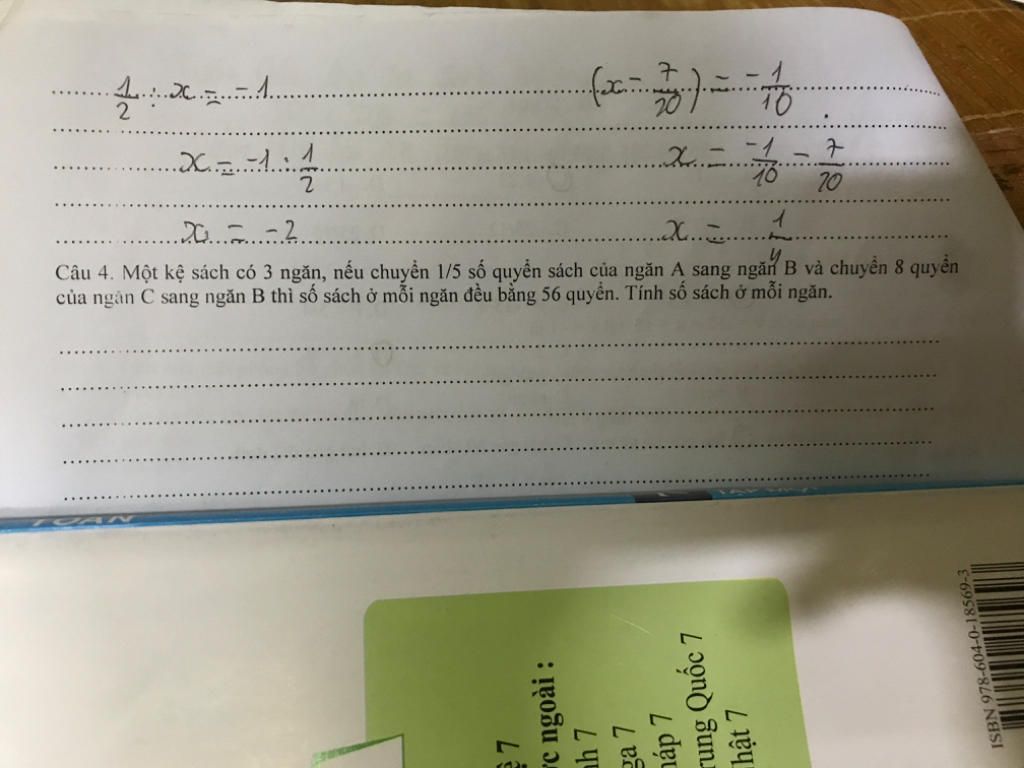 1/2 : x = -1 (x - 7/20) = -1/10
x = -1 : 1/2 x = -1/10 - 7/20
x = -2 x = 1/4
Câu 4. Một kệ sách có 3 ngăn, nếu chuyển 1/5 số quyển sách của ngăn A sang ngăn B và chuyển 8 quyển
của ngăn C sang ngăn B thì số sách ở mỗi ngăn đều bằng 56 quyển. Tính số sách ở mỗi ngăn.
TOÁN
ợc ngoài :
rung Quốc 7
háp 7
hật 7
ga 7
nh 7
ệ 7
ISBN 978-604-0-18569-3